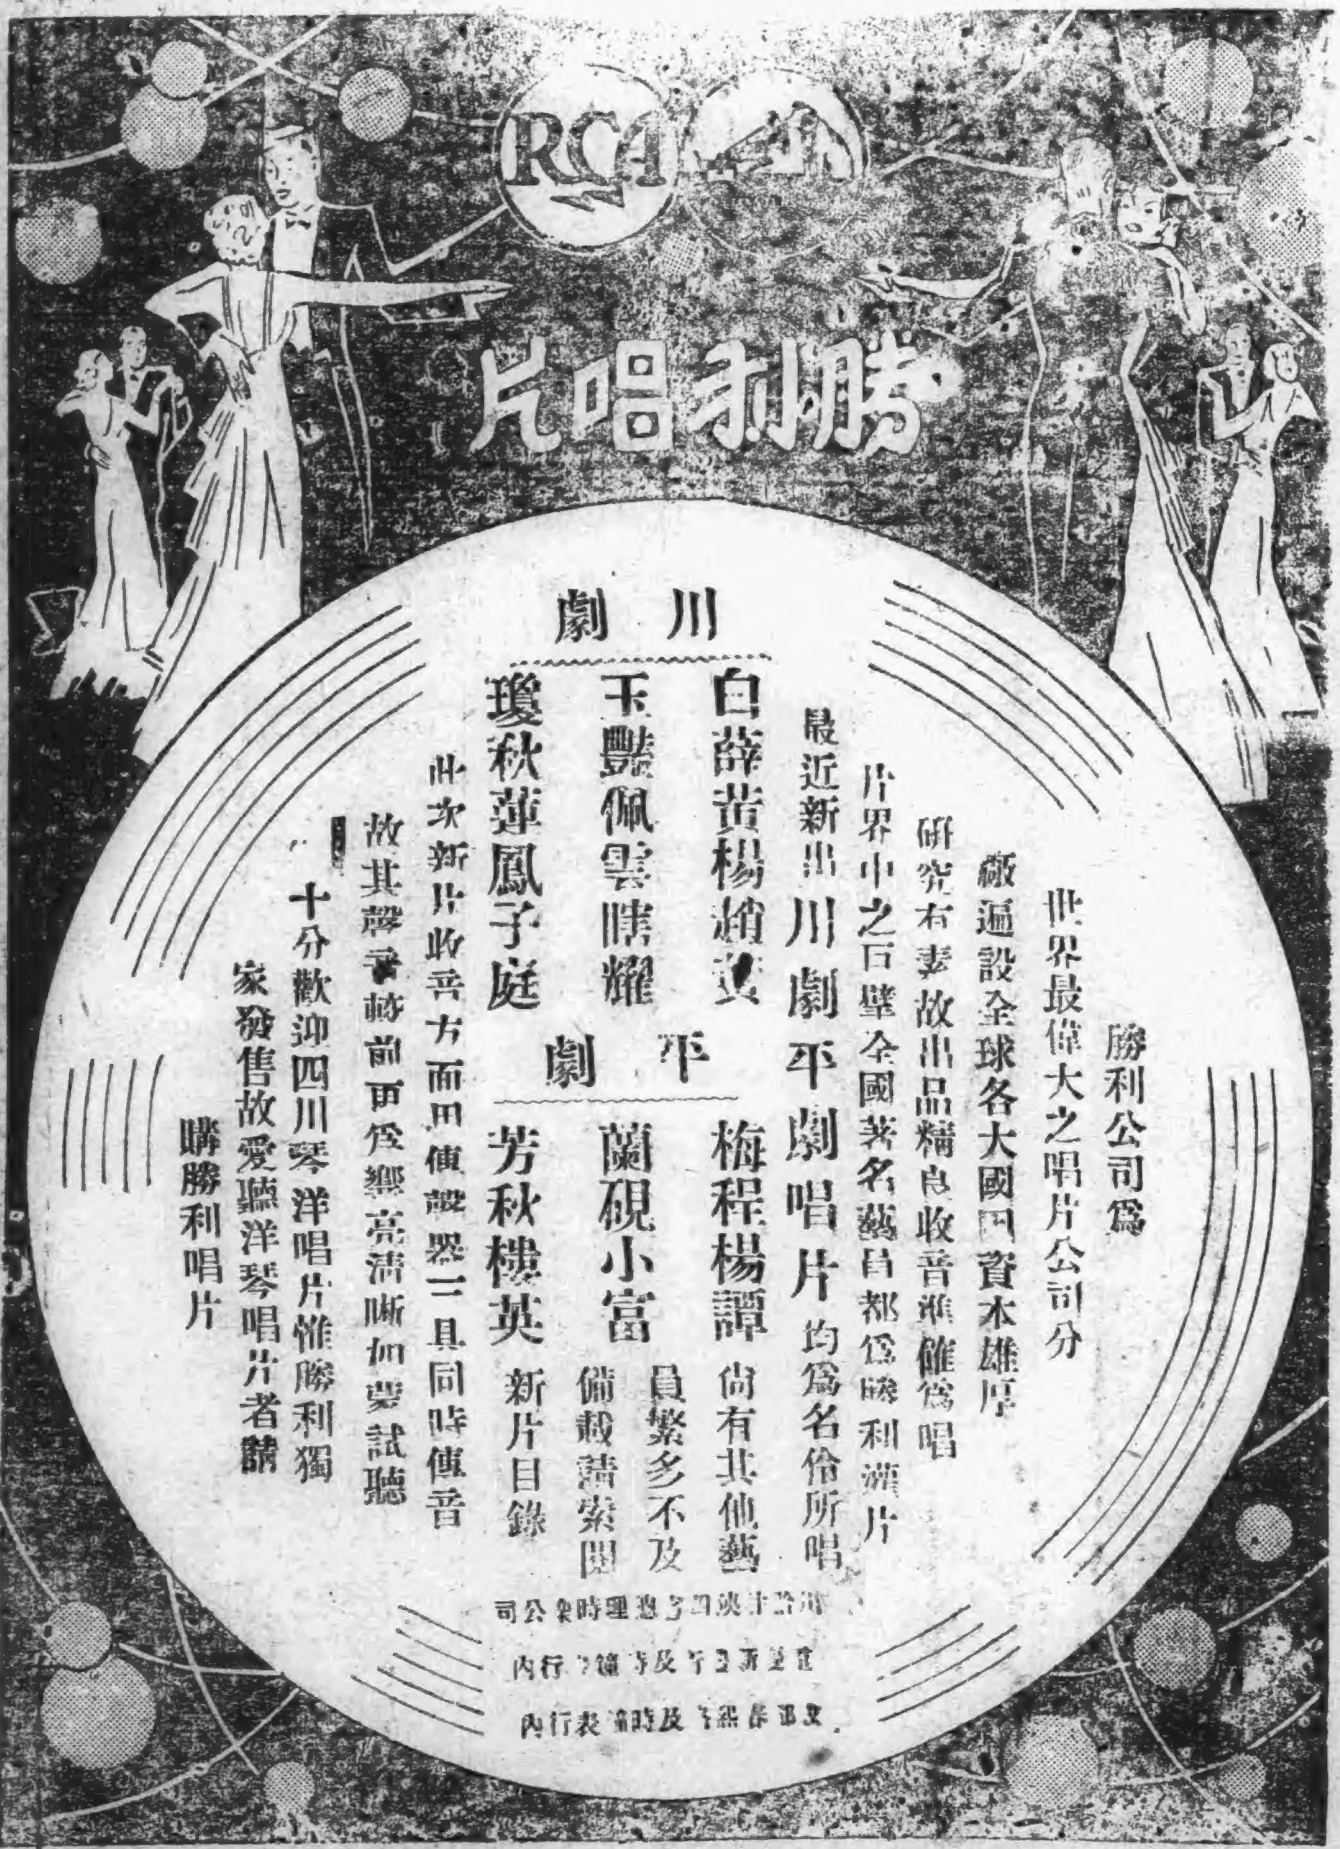 RCA
勝利唱片
勝利公司為
世界最偉大之唱片公司分
廠遍設全球各大國因資本雄厚
研究有素故出品精良收音準確為唱
片界中之巨擘全國著名藝員都為勝利灌片
最近新出川劇平劇唱片均為名伶所唱
川劇
白玉瓊
薛豔秋
黃佩蓮
楊雲鳳
趙瞎子
耀庭
平劇
梅蘭芳
程硯秋
楊小樓
譚富英
尚有其他藝
員繁多不及
備載請索閱
新片目錄
此次新片收音方面用傳聲器二具同時傳音
故其聲音較前更為響亮清晰如蒙試聽
十分歡迎四川琴洋唱片惟勝利獨
家發售故愛聽洋琴唱片者請
購勝利唱片
總理時樂公司
及時鐘行內
及時鐘表行內